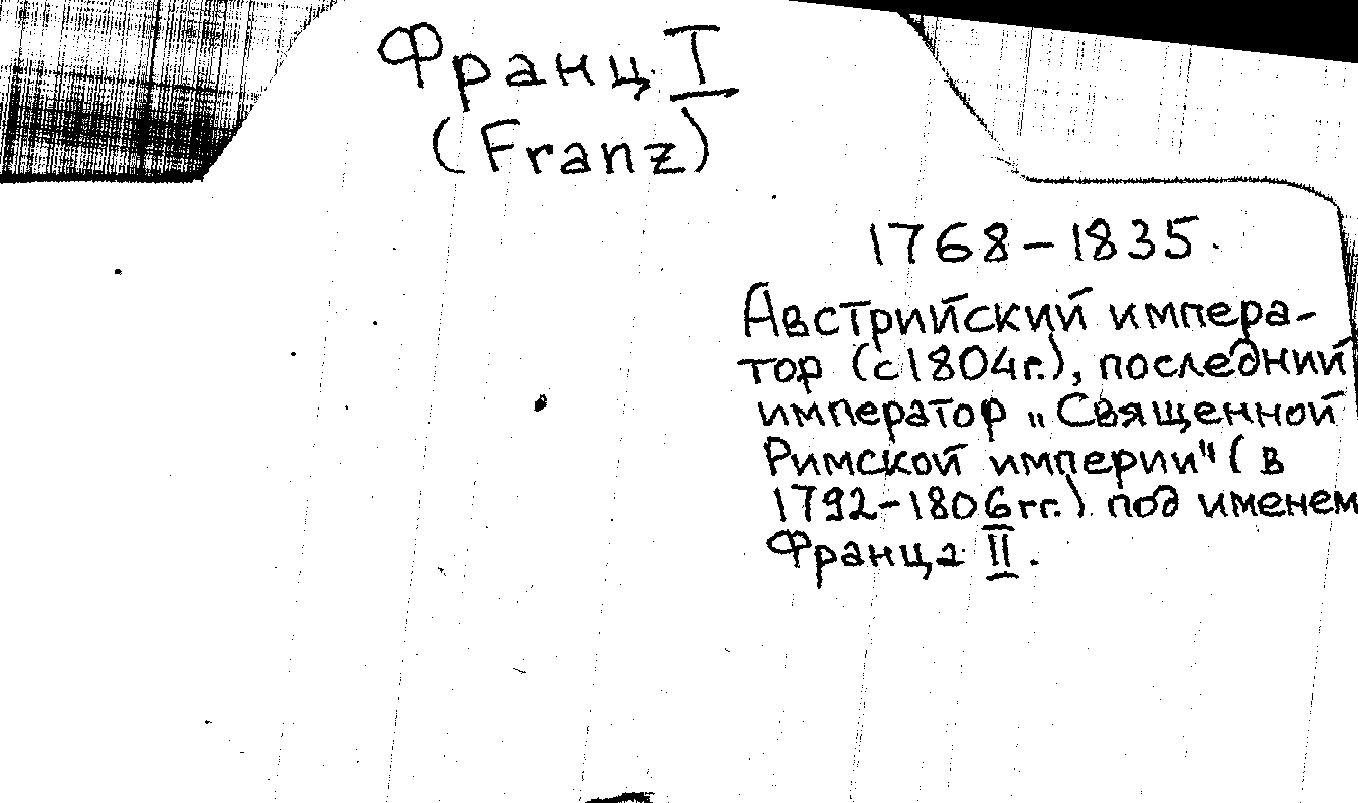 Франц I
(Franz)
1768-1835.
Австрийский импера-
тор (с 1804г.), последний
император „Священной
Римской империи" (в
1792-1806гг.) под именем
Франца II.